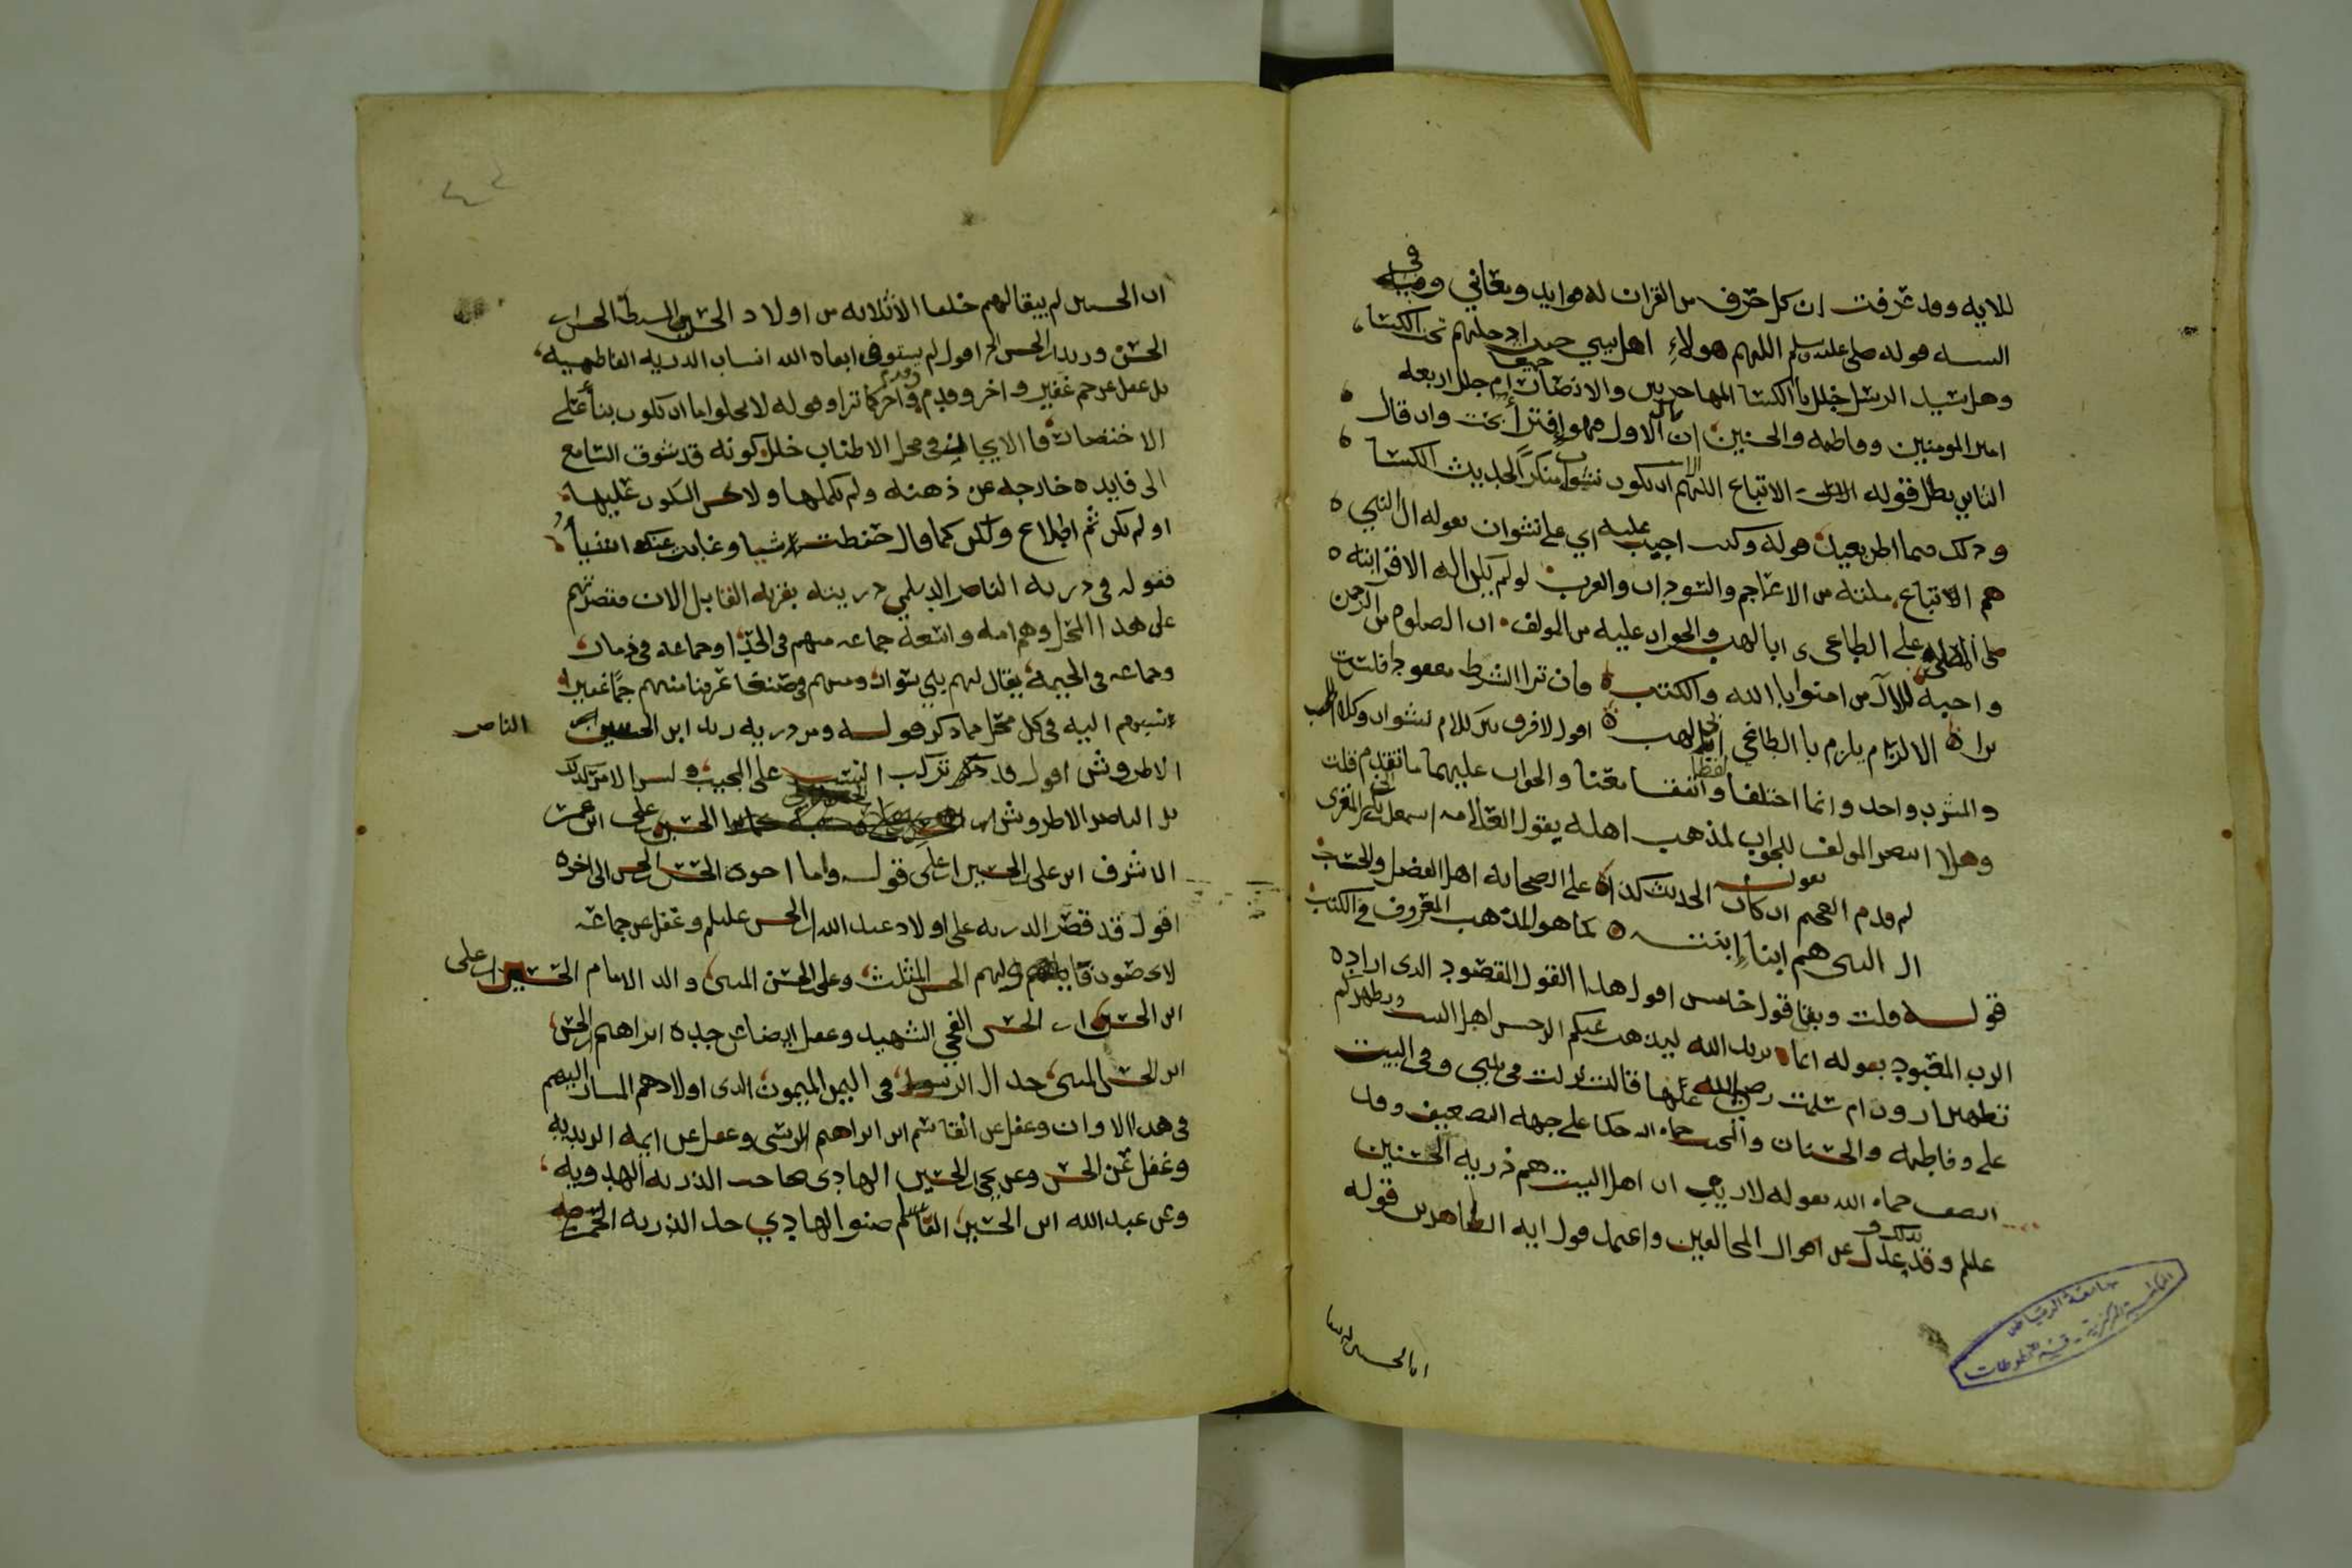 للايه وقد عرفت ان كل حرف من القران له فوايد ومعاني وفي
السنه قوله صلى عليه وسلم اللهم هولاء اهل بيتي حين ادخلهم تحت الكسا
وهل سيد الرسل جلل بالكسا المهاجرين والانصار ام جلل اربعه
امير المومنين وفاطمه والحسنين ان قال الاول فهو افترا بحت وان قال
الثاني بطل قوله الال الاتباع اللهم الا ان يكون نشوان منكراً لحديث الكسا
وذلك مما اظن بعيد قوله وكنت اجيب عليه اي على نشوان بقوله ال النبي
هم اتباع ملته من الاعاجم والسودان والعرب لو لم يكن اله الا قرابته
صلى المصلي على الطاغي ابي لهب والجواب عليه من المولف ان الصلوه من الرحمن
واجبه للال من امنوا بالله والكتب فان ترا الشرط مفقودا فلست
ترا الالزام يلزم بالطاغي ابي لهب اقول لا فرق بين كلام نشوان وكلام المجيب
والمشرب واحد وانما اختلفا لفظا واتفقا معنا والجواب عليهما ما تقدم قلت
وهلا انتصر المولف للجواب لمذهب اهله بقول العلامه اسمعيل بن ابي بكر المقري
لم قدم العجم ان كان الحديث كذا على الصحابه اهل الفضل والحسب
ال النبي هم ابنا ابنته كما هو المذهب المعروف في الكتب
قوله قلت وبقي قول خامس اقول هذا القول المقصود الذي اراده
الرب المعبود بقوله انما يريد الله ليذهب عنكم الرجس اهل البيت ويطهركم
تطهيرا روت ام سلمت رضي الله عنها قالت نزلت في بيتي وفي البيت
علي وفاطمه والحسنان والمجيب حماه الله حكا على جهه التضعيف وقد
انصف حماه الله بقوله لا ريب ان اهل البيت هم ذريه الحسنين
عليلم وقد عدل بذلك عن اقوال المخالفين واعتمد قول ايه الطاهرين قوله
ان الحسن لم يبقا
جامعة الرياض
المكتبة المركزية - قسم المخطوطات
ان الحسن لم يبقا لهم خلفا الا ثلاثه من اولاد الحسن السبط الحسن بن
الحسن وزيد بن الحسن الخ اقول لم يستوفي ابقاه الله انساب الذريه الفاطميه
بل غفل عن جم غفير واخر وقدم وقدم واخر كما ترا وقوله لا يخلوا اما ان يكون بنا على
الاختصار فالايجاز في محل الاطناب خلل كونه قد شوق السامع
الى فايده خارجه عن ذهنه ولم يكملها ولا يحسن السكوت عليها
او لم يكن ثم اطلاع ولكن كما قال حفظت شيا وغابت عنك اشيا
فقوله في ذريه الناصر الديلمي ذريته بقريه القابل الان فقصرهم
على هذا المحل وهم امه واسعه جماعه منهم في الحدا وجماعه في ذمار
وجماعه في الحيمه يقال لهم بني شوان ومنهم في صنعا عرفنا منهم جماً غفيرا
نسبهم اليه في كل محل مما ذكر قوله ومن ذريه زيد ابن الحسن الناصر
الاطروش اقول قد تركب النسب على المجيب وليس الامر كذلك
بل الناصر الاطروش الحسن بن علي ابن الحسن بن علي ابن عمر
الاشرف ابن علي بن الحسين بن علي قوله واما اخوه الحسن بن الحسن الى اخره
اقول قد قصر الذريه على اولاد عبد الله بن الحسن عليلم وغفل عن جماعه
وليهم الحسن المثلث وعلى الحسن المثنى والد الامام الحسين بن علي
ابن الحسن بن الحسن الفخي الشهيد وغفل ايضا عن جده ابراهيم بن الحسن
ابن الحسن المثنى جد ال الرسول في اليمن الميمون الذي اولاده هم المشار اليهم
في هذا الاوان وغفل عن القاسم ابن ابراهيم الرسي وغفل عن ايمه الزيديه
وغفل عن الحسن وعن يحيى بن الحسين الهادي صاحب الذريه الهدويه
وعن عبدالله ابن الحسين القاسم صنو الهادي جد الذريه الحمزيه